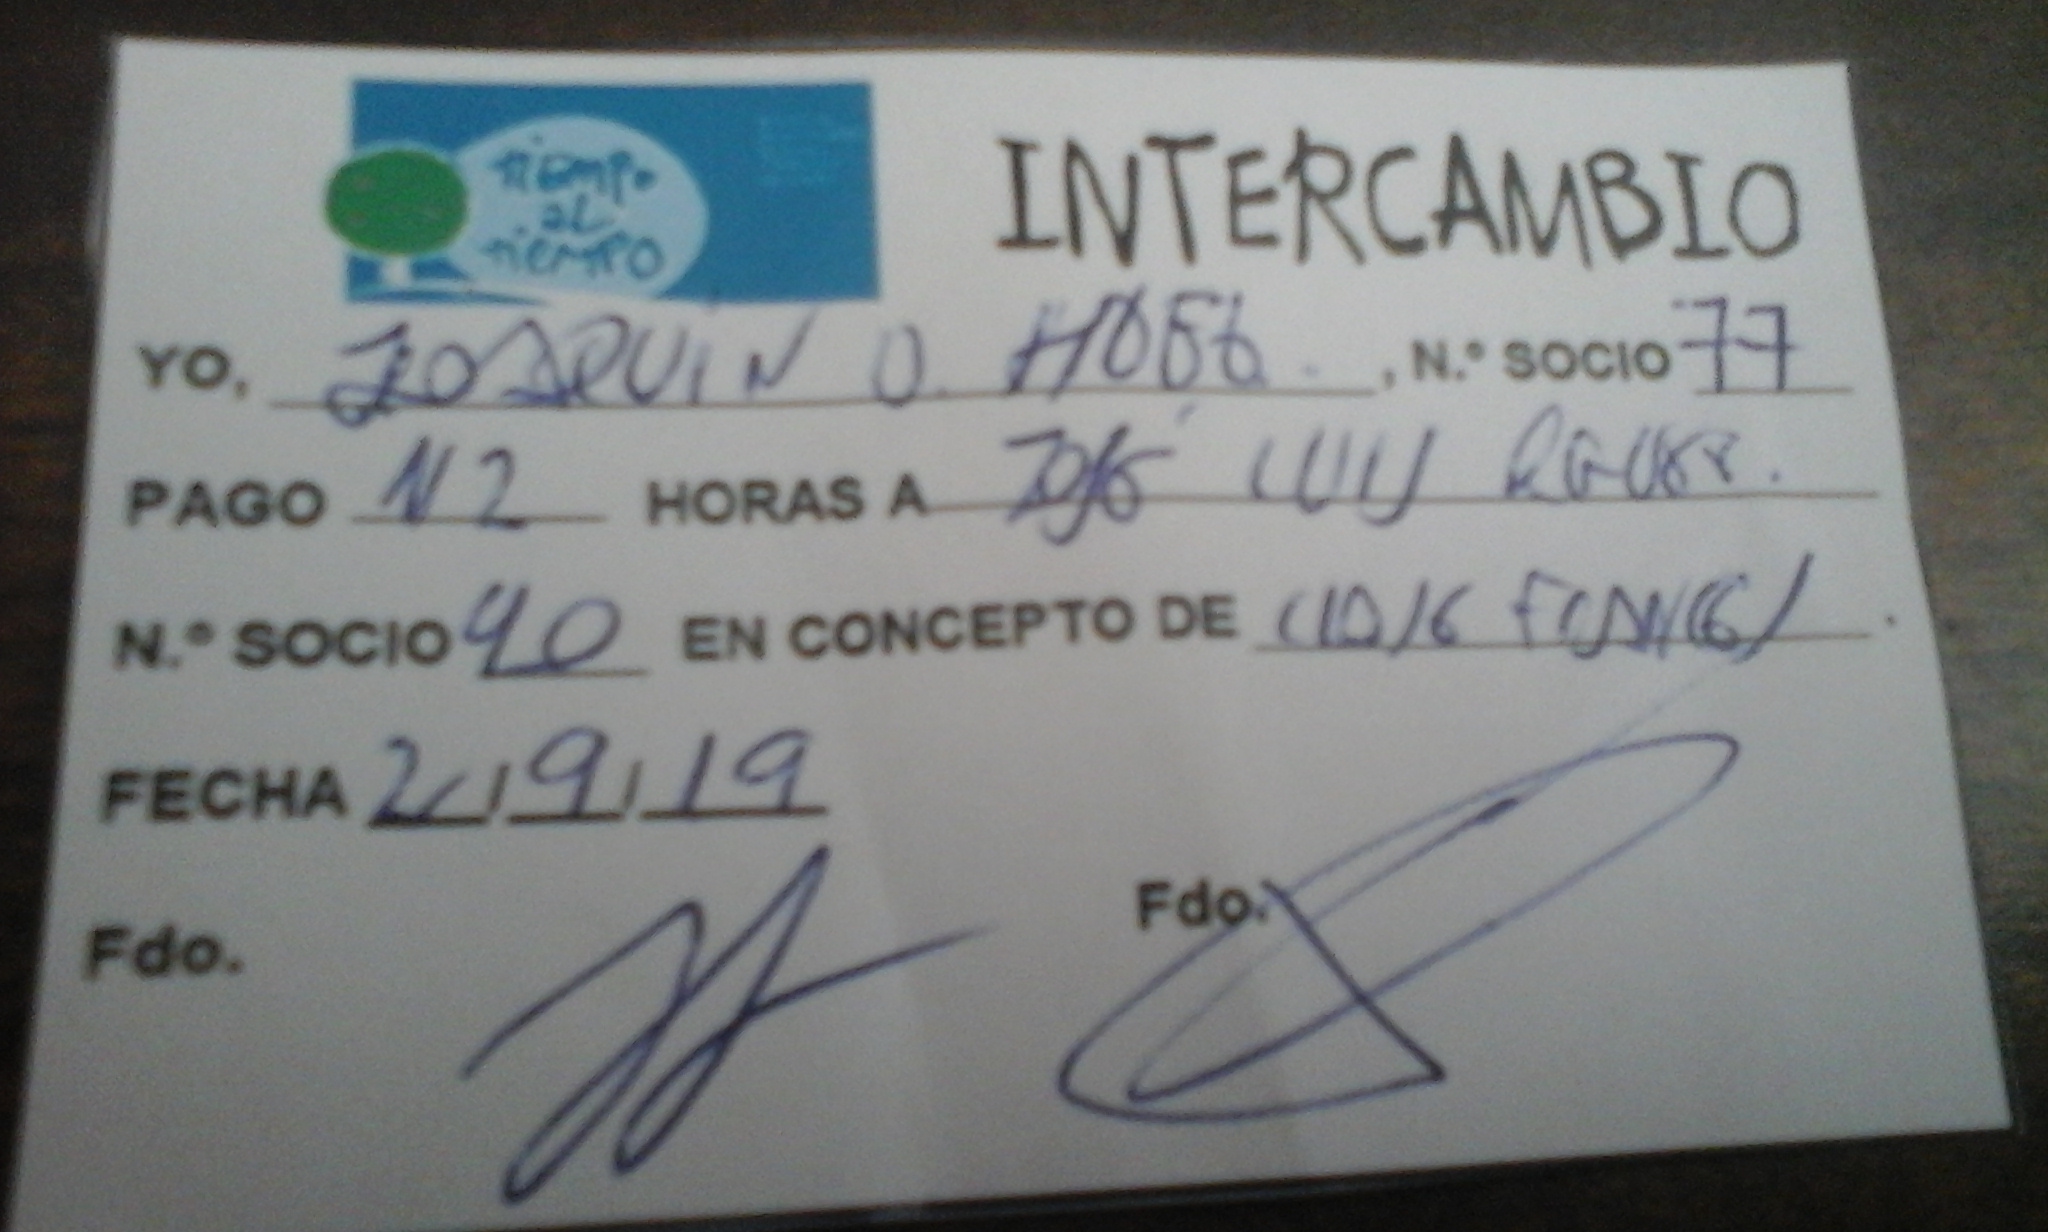 tiempo
al
tiempo
INTERCAMBIO
YO, JOAQUÍN O. , N.º SOCIO 77
PAGO HORAS A José LUIS
N.º SOCIO 40 EN CONCEPTO DE
FECHA 2/9/19
Fdo.
Fdo.